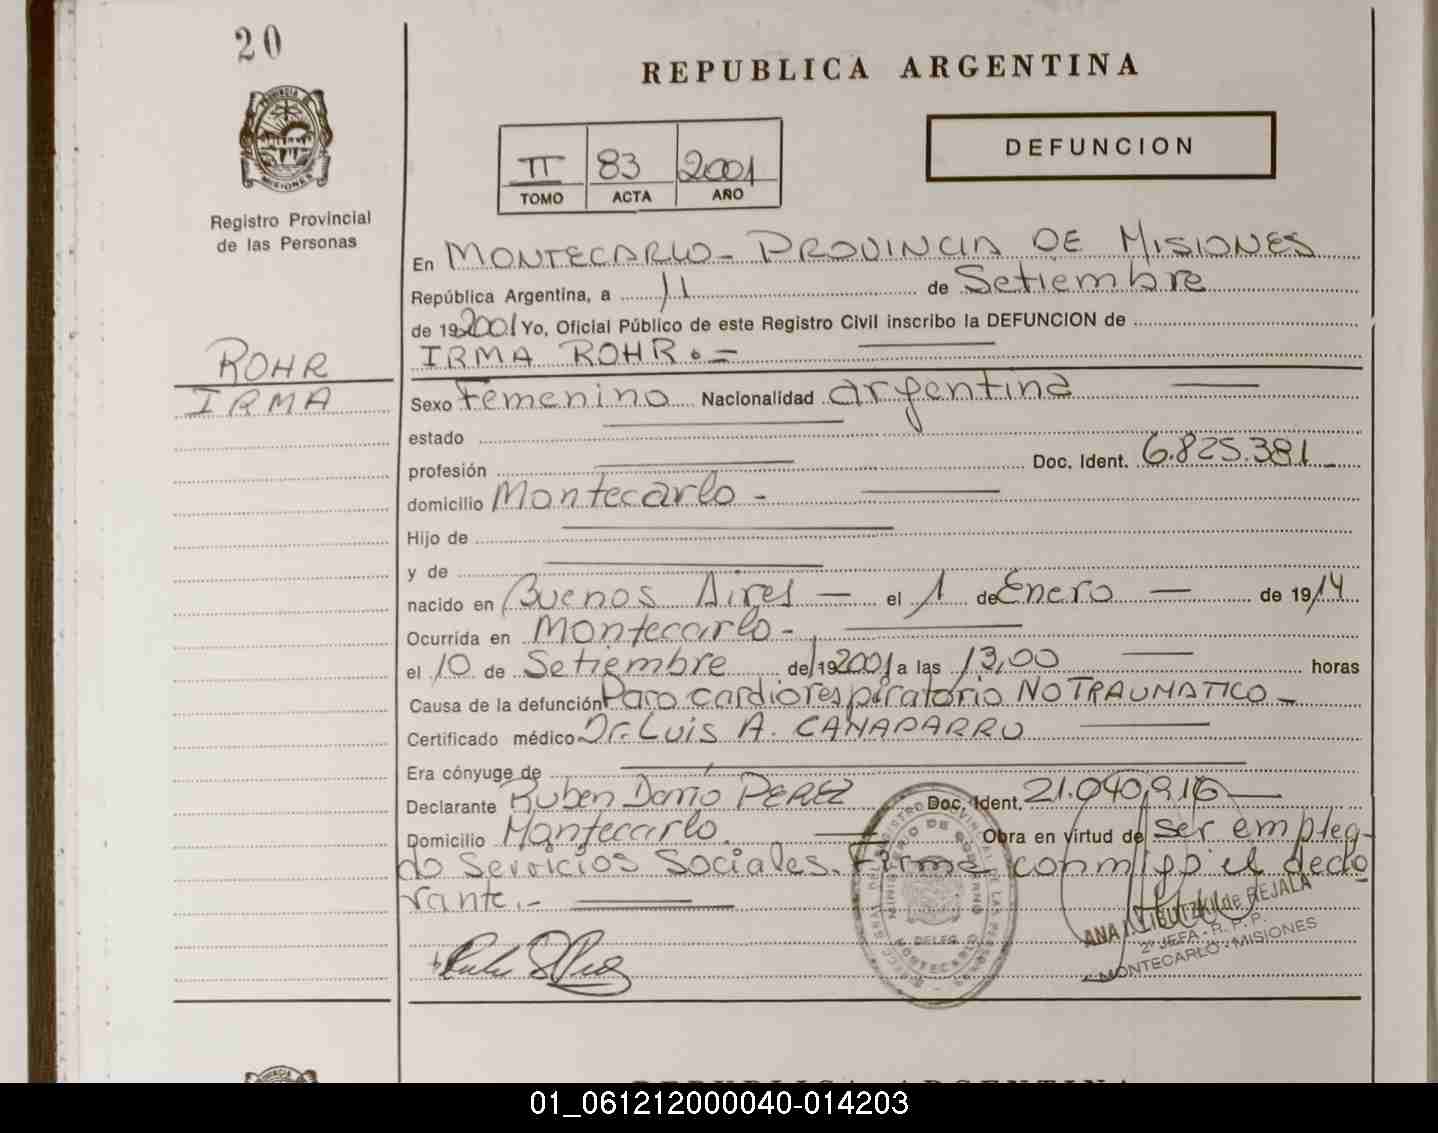 20
PROVINCIA DE
MISIONES
Registro Provincial
de las Personas
ROHR
IRMA
REPUBLICA ARGENTINA
II 83 2001
TOMO ACTA AÑO
DEFUNCION
En MONTECARLO - PROVINCIA DE MISIONES
República Argentina, a 11 de Setiembre
de 19 2001 Yo, Oficial Público de este Registro Civil inscribo la DEFUNCION de
IRMA ROHR. =
Sexo Femenino Nacionalidad argentina
estado
profesión Doc. Ident. 6.825.381
domicilio Montecarlo -
Hijo de
y de
nacido en Buenos Aires - el 1 de Enero - de 1914
Ocurrida en Montecarlo -
el 10 de Setiembre de 19 2001 a las 13,00 horas
Causa de la defunción Paro cardiorespiratorio NO TRAUMATICO -
Certificado médico Dr. Luis A. CANAPARRO
Era cónyuge de
Declarante Ruben Darío PEREZ Doc. Ident. 21.040.916
Domicilio Montecarlo. Obra en virtud de ser emplea-
do Servicios Sociales. Firma conmigo el decla
rante. -
MINISTERIO DE GOBIERNO
DELEG.
MONTECARLO
ANA I. de REJALA
2º JEFA - R. P. P.
MONTECARLO - MISIONES
REPUBLICA ARGENTINA
01_061212000040-014203